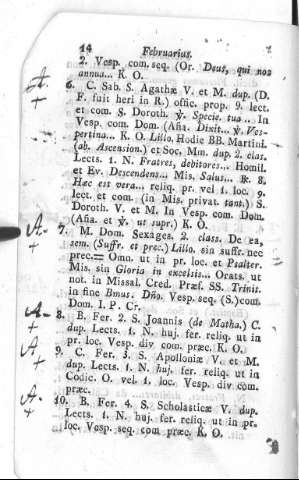 14 Februarius.
2. Vesp. com. seq. (Or. Deus, qui nos
annua... K. O.
A. 6. C. Sab. S. Agathæ V. et M. dup. (D.
+ F. fuit heri in R.) offic. prop. 9. lect.
et com. S. Doroth. ℣. Specie tua... In
Vesp. com. Dom. (Aña. Dixit... ℣. Ves-
pertina... K. O. Lillo. Hodie BB. Martini.
(ab. Ascension.) et Soc. Mm. dup. 2. clas.
Lects. 1. N. Fratres, debitores... Homil.
et Ev. Descendens... Mis. Salus... ℞. 8.
Hæc est vera... reliq. pr. vel 1. loc. 9.
lect. et com. (in Mis. privat. tant.) S.
Doroth. V. et M. In Vesp. com. Dom.
(Aña. et ℣. ut supr.) K. O.
A. 7. M. Dom. Sexages. 2. class. De ea,
+ sem. (Suffr. et prec.) Lillo. sin suffr. nec
prec.= Omn. ut in pr. loc. et Psalter.
Mis. sin Gloria in excelsis... Orats. ut
not. in Missal. Cred. Præf. SS. Trinit.
in fine Bmus. Dño. Vesp. seq. (S.) com.
A. Dom. I. P. Cr.
+ 8. B. Fer. 2. S. Joannis (de Matha.) C.
dup. Lects. 1. N. huj. fer. reliq. ut in
A. pr. loc. Vesp. div com. præc. K. O.
+ 9. C. Fer. 3. S. Apolloniæ V. et M.
dup. Lects. 1. N. huj. fer. reliq. ut in
Codic. O. vel. 1. loc. Vesp. div com.
A. præc.
+ 10. B. Fer. 4. S. Scholasticæ V. dup.
Lects. 1. N. huj. fer. reliq. ut in pr.
loc. Vesp. seq. com præc. K. O.